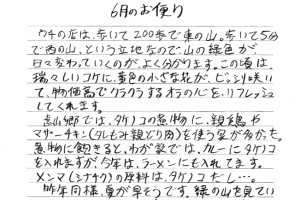 6月のお便り
ウチの店は、歩いて200歩で東の山。歩いて5分
で西の山、という立地なので、山の緑色が、
日々変わっていくのが、よく分かります。この頃は、
瑞々しいコケに、黄色の小さな花が、ビッシリ咲い
て、物価高でクラクラするオラの心を、リフレッシュ
してくれます。
嵩山郷では、タケノコの煮物に、親鶏や
マザーチキン(タレもみ親どり肉)を使う家が多かった。
煮物に飽きると、わが家では、カレーにタケノコ
を入れますが、今年は、ラーメンにも入れてます。
メンマ(シナチク)の原料は、タケノコだし…。
昨年同様、夏が早そうです。緑の山を見てい